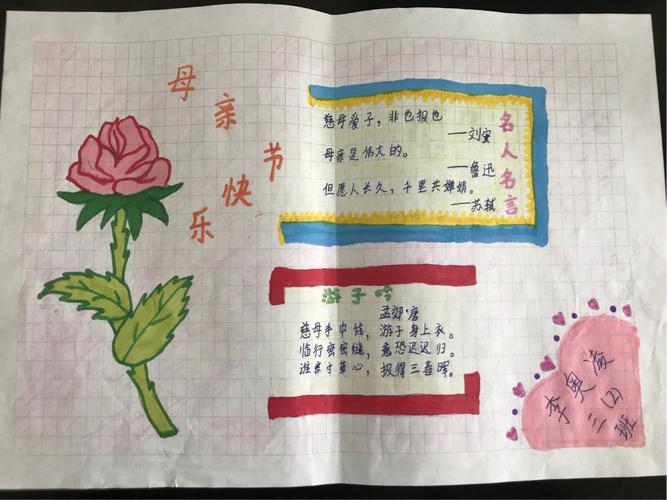 母亲节快乐
名人名言
慈母爱子，非也报也
——刘安
母亲是伟大的。
——鲁迅
但愿人长久，千里共婵娟。
——苏轼
游子吟
孟郊·唐
慈母手中线，游子身上衣。
临行密密缝，意恐迟迟归。
谁言寸草心，报得三春晖。
李奥海
三(2)班